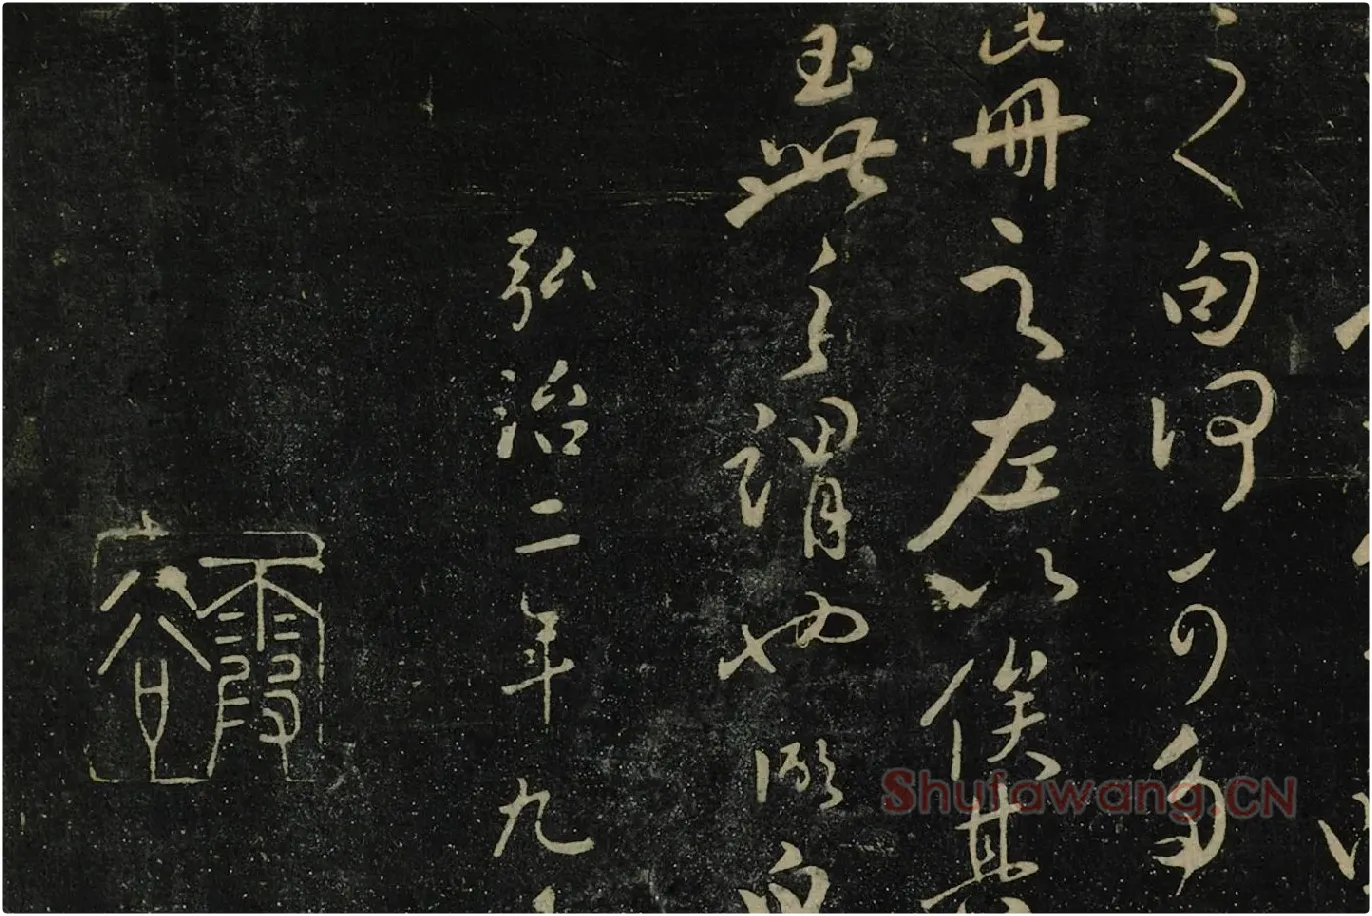 之句何可多
此冊之左以俟其
玉無之謂也
弘治二年九
霞谷
Shufawang.CN